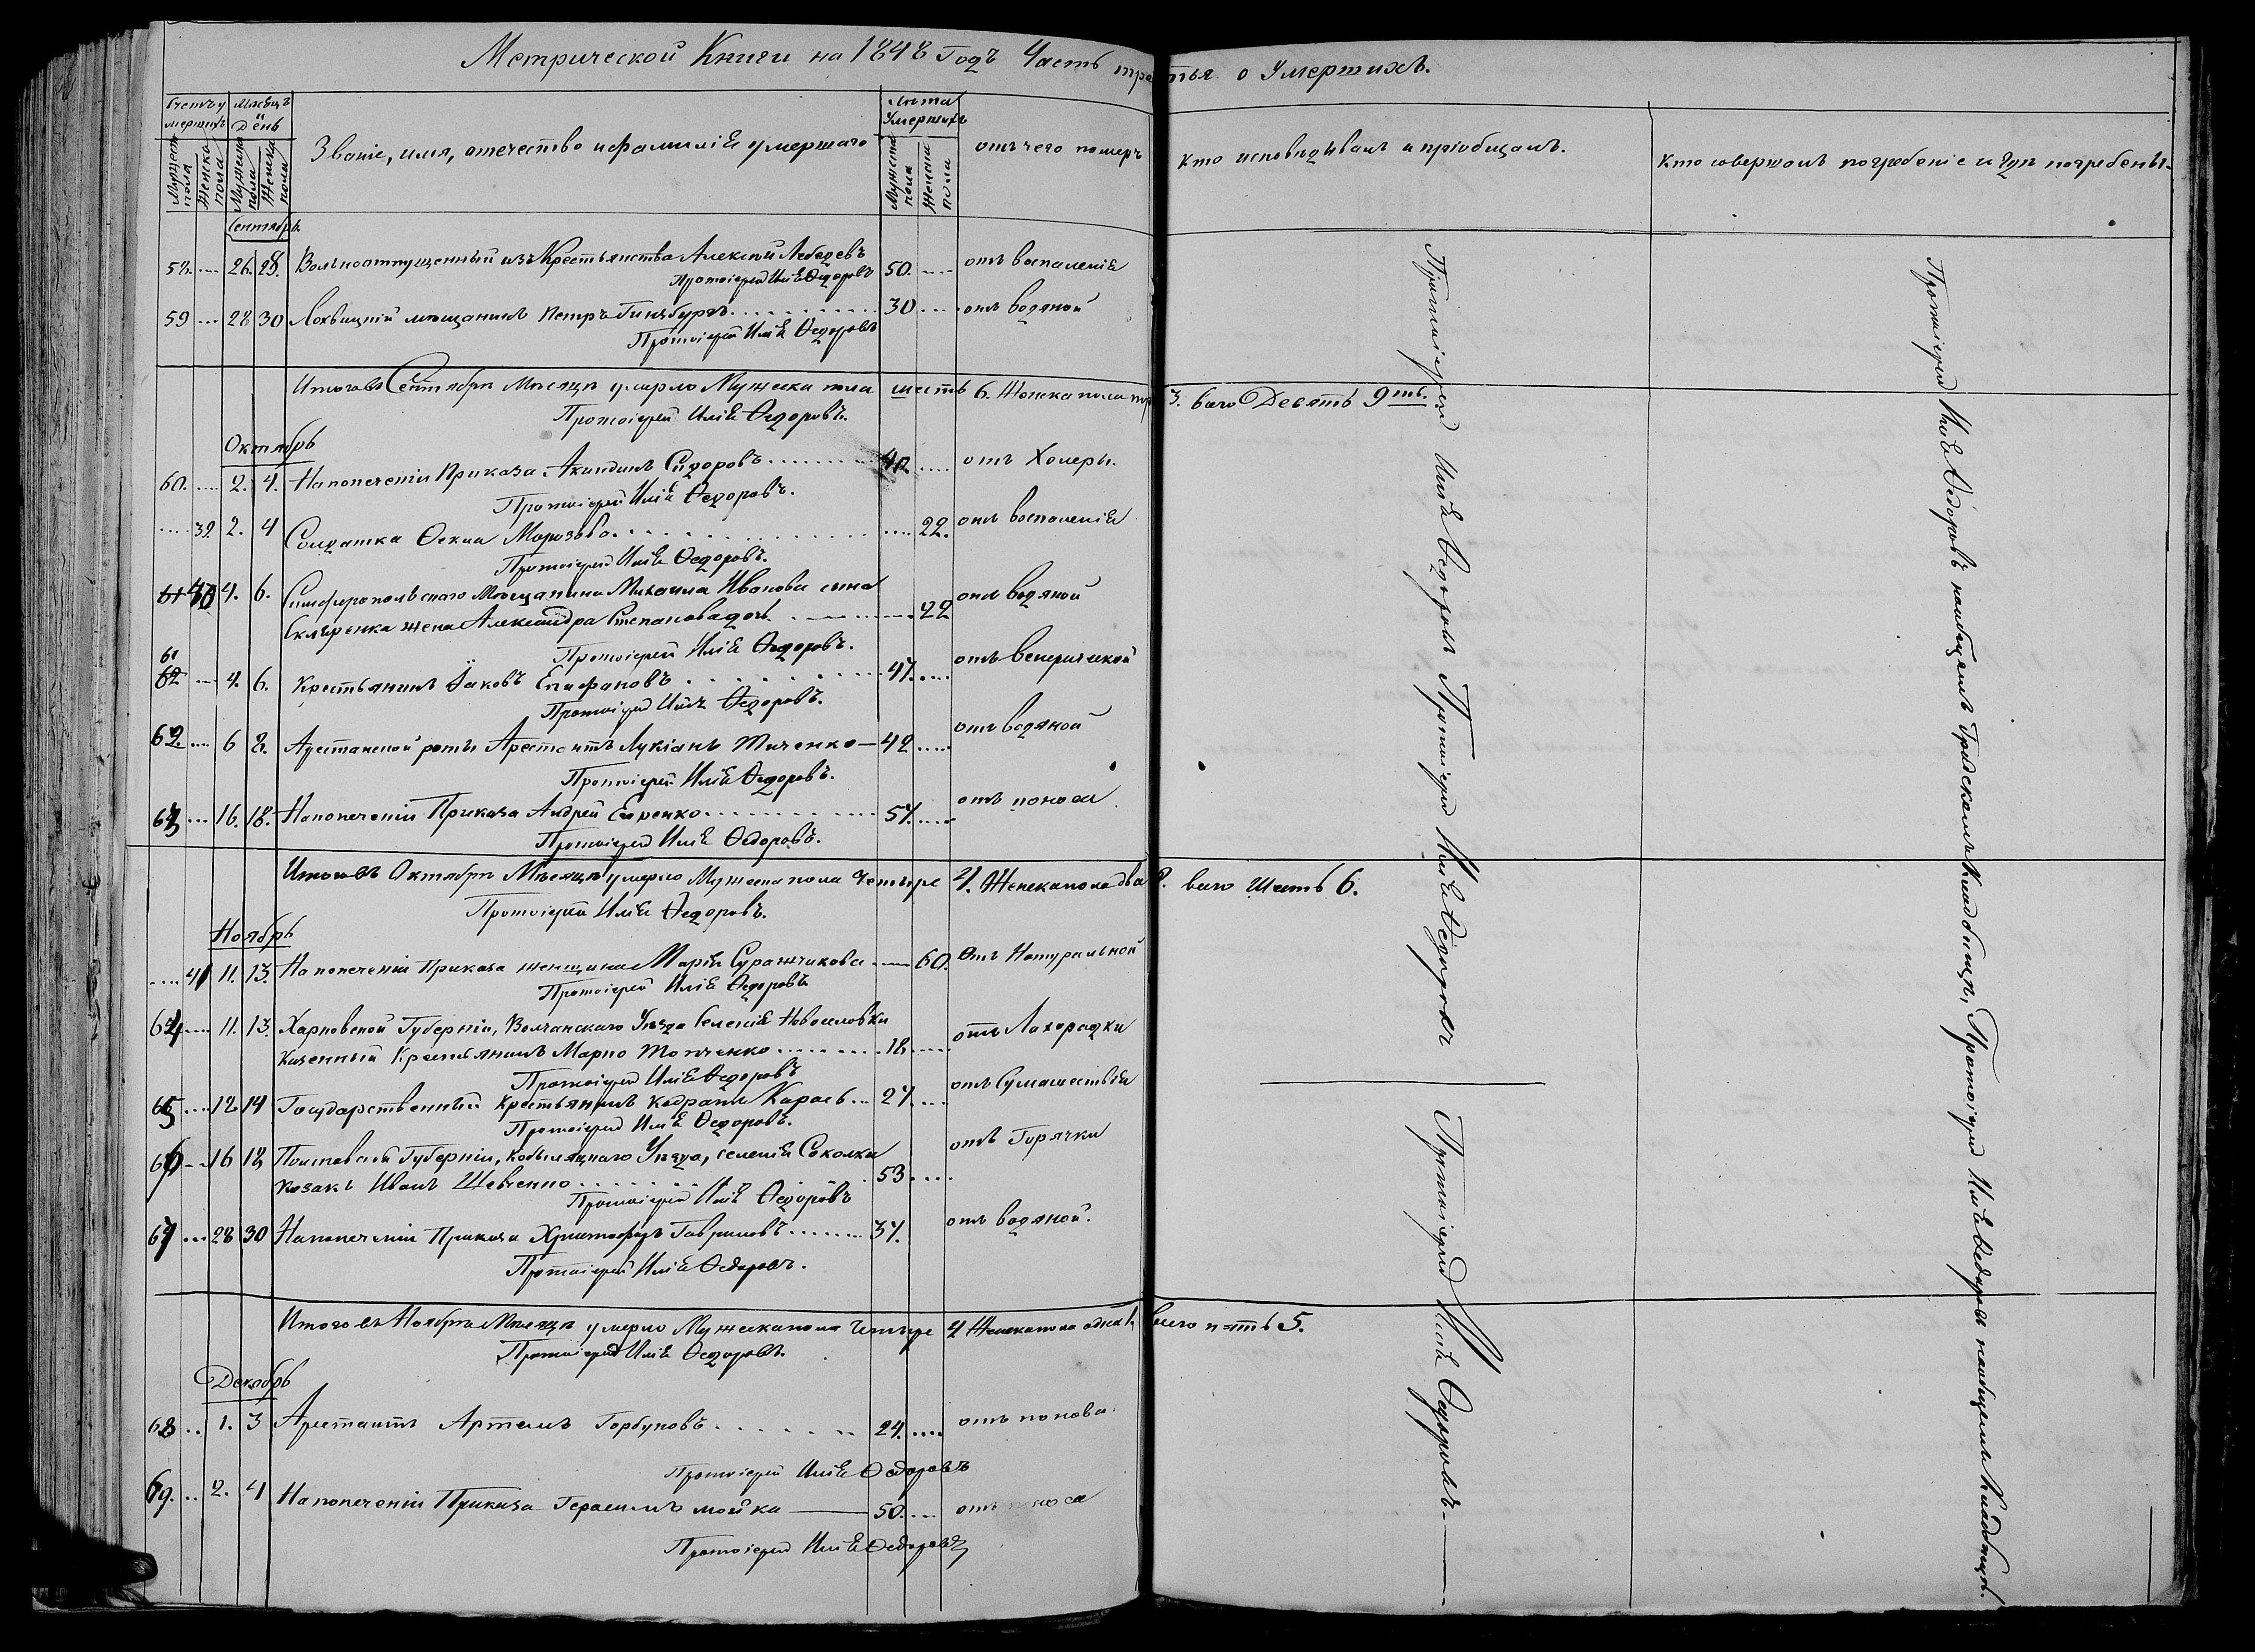 Метрической Книги на 1848 Годъ Часть третья о Умершихъ.
Счетъ умершихъ
Мужеска пола
Женска пола
Мѣсяцъ и День
Мужеска пола
Женска пола
Званіе, имя, отечество и фамилія умершаго
Лѣта Умершихъ
Мужеска пола
Женска пола
отъ чего померъ
Кто исповѣдывалъ и пріобщалъ.
Кто совершалъ погребеніе и гдѣ погребены.
Сентябрь
58. .... 26. 28. Вольноотпущенный изъ Крестьянства Алексѣй Лебедевъ 50. .... отъ воспаленія
Протоіерей Илія Ѳедоровъ
59 ... 28 30 Лохвицкій мѣщанинъ Петръ Гинзбургъ 30 .... отъ водяной
Протоіерей Илія Ѳедоровъ
Итого въ Сентябрѣ Мѣсяцѣ умерло Мужеска пола шесть 6. Женска пола три 3. всего Девять 9ть.
Протоіерей Илія Ѳедоровъ.
Октябрь
60. .... 2. 4. На попеченіи Приказа Акиндинъ Сидоровъ 40 .... отъ Холеры.
Протоіерей Илія Ѳедоровъ.
.... 39. 2. 4 Солдатка Ѳекла Морозова .... 22. отъ воспаленія
Протоіерей Илія Ѳедоровъ.
61 40 4. 6. Симферопольскаго Мѣщанина Михаила Иванова сына
Скляренка жена Александра Степанова дочь 22 отъ водяной
Протоіерей Илія Ѳедоровъ.
61
62 ... 4. 6. Крестьянинъ Іаковъ Епифановъ 47. .... отъ венерической
Протоіерей Илія Ѳедоровъ.
62. ... 6 8. Арестанской роты Арестантъ Лукіанъ Тиченко — 42 .... отъ водяной
Протоіерей Илія Ѳедоровъ.
63 ... 16. 18. На попеченіи Приказа Андрей 57. .... отъ поноса
Протоіерей Илія Ѳедоровъ.
Итого въ Октябрѣ Мѣсяцѣ умерло Мужеска пола Четыре 4. Женска пола два 2. всего Шесть 6.
Протоіерей Илія Ѳедоровъ.
Ноябрь
.... 41 11. 13. На попеченіи Приказа женщина Марія Суражчикова — 60. Отъ Натуральной
Протоіерей Илія Ѳедоровъ
64 .... 11. 13. Харковской Губерніи, Волчанскаго Уѣзда Селенія Новоселовки
Казенный Крестьянинъ Марко Топченко 18. .... отъ Лихорадки
Протоіерей Илія Ѳедоровъ
65 .... 12 14 Государственный Крестьянинъ Кодратъ Караев 27. .... отъ Сумашествія
Протоіерей Илія Ѳедоровъ.
66 .. 16 18 Полтавской Губерніи, Кобыляцкаго Уѣзда, селенія Соколки
Козакъ Иванъ Шевченко 53 .... отъ Горячки
Протоіерей Илія Ѳедоровъ
67 ... 28 30 На попеченіи Приказа Христофоръ Гавриловъ 37. отъ водяной.
Протоіерей Илія Ѳедоровъ.
Итого въ Ноябрѣ Мѣсяцѣ умерло Мужеска пола Четыре 4 Женска пола одна 1. всего пять 5.
Протоіерей Илія Ѳедоровъ.
Декабрь
68 .. 1. 3 Арестантъ Артемъ Горбуновъ 24. .... отъ поноса.
Протоіерей Илія Ѳедоровъ
69. .. 2. 4 На попеченіи Приказа Герасимъ мойка — 50. ... отъ поноса
Протоіерей Илія Ѳедоровъ
Протоіерей Илія Ѳедоровъ Протоіерей Илія Ѳедоровъ — Протоіерей Илія Ѳедоровъ —
Протоіерей Илія Ѳедоровъ на общемъ Градскомъ Кладбищѣ, Протоіерей Илія Ѳедоровъ на общемъ Кладбищѣ.